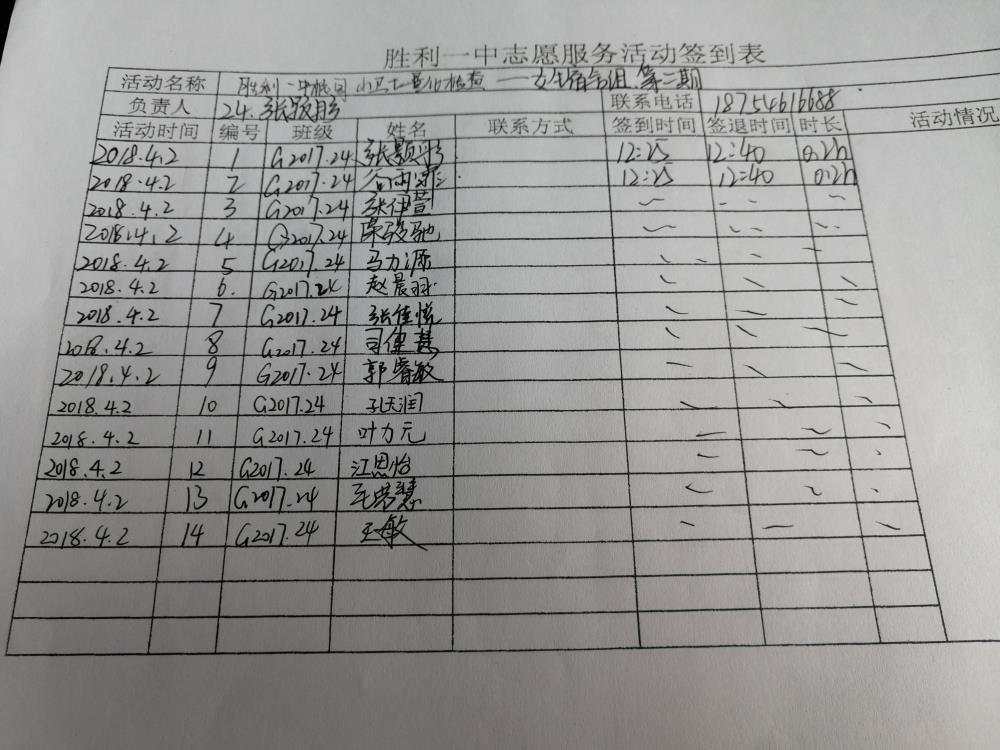 胜利一中志愿服务活动签到表
活动名称 胜利一中校园小卫士量化检查——女生宿舍组.第二期
负责人 24. 联系电话 18754616688
活动时间 编号 班级 姓名 联系方式 签到时间 签退时间 时长 活动情况
2018.4.2 1 G2017.24 张颢 12:25 12:40 0.2h
2018.4.2 2 G2017.24 谷雨霏 12:25 12:40 0.2h
2018.4.2 3 G2017.24 张伊萱
2018.4.2 4 G2017.24 骏驰
2018.4.2 5 G2017.24 马力源
2018.4.2 6. G2017.24 赵晨羽
2018.4.2 7 G2017.24 张佳悦
2018.4.2 8 G2017.24 司
2018.4.2 9 G2017.24 郭睿敏
2018.4.2 10 G2017.24 孔天润
2018.4.2 11 G2017.24 叶力元
2018.4.2 12 G2017.24 江恩怡
2018.4.2 13 G2017.24 慧
2018.4.2 14 G2017.24 王敏